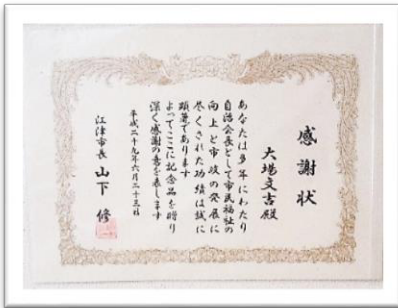 感謝状
大場文吉殿
あなたは多年にわたり
自治会長として市民福祉の
向上と市政の発展に
尽くされた功績は誠に
顕著であります
よってここに記念品を贈り
深く感謝の意を表します
平成二十九年六月二十三日
江津市長 山下 修